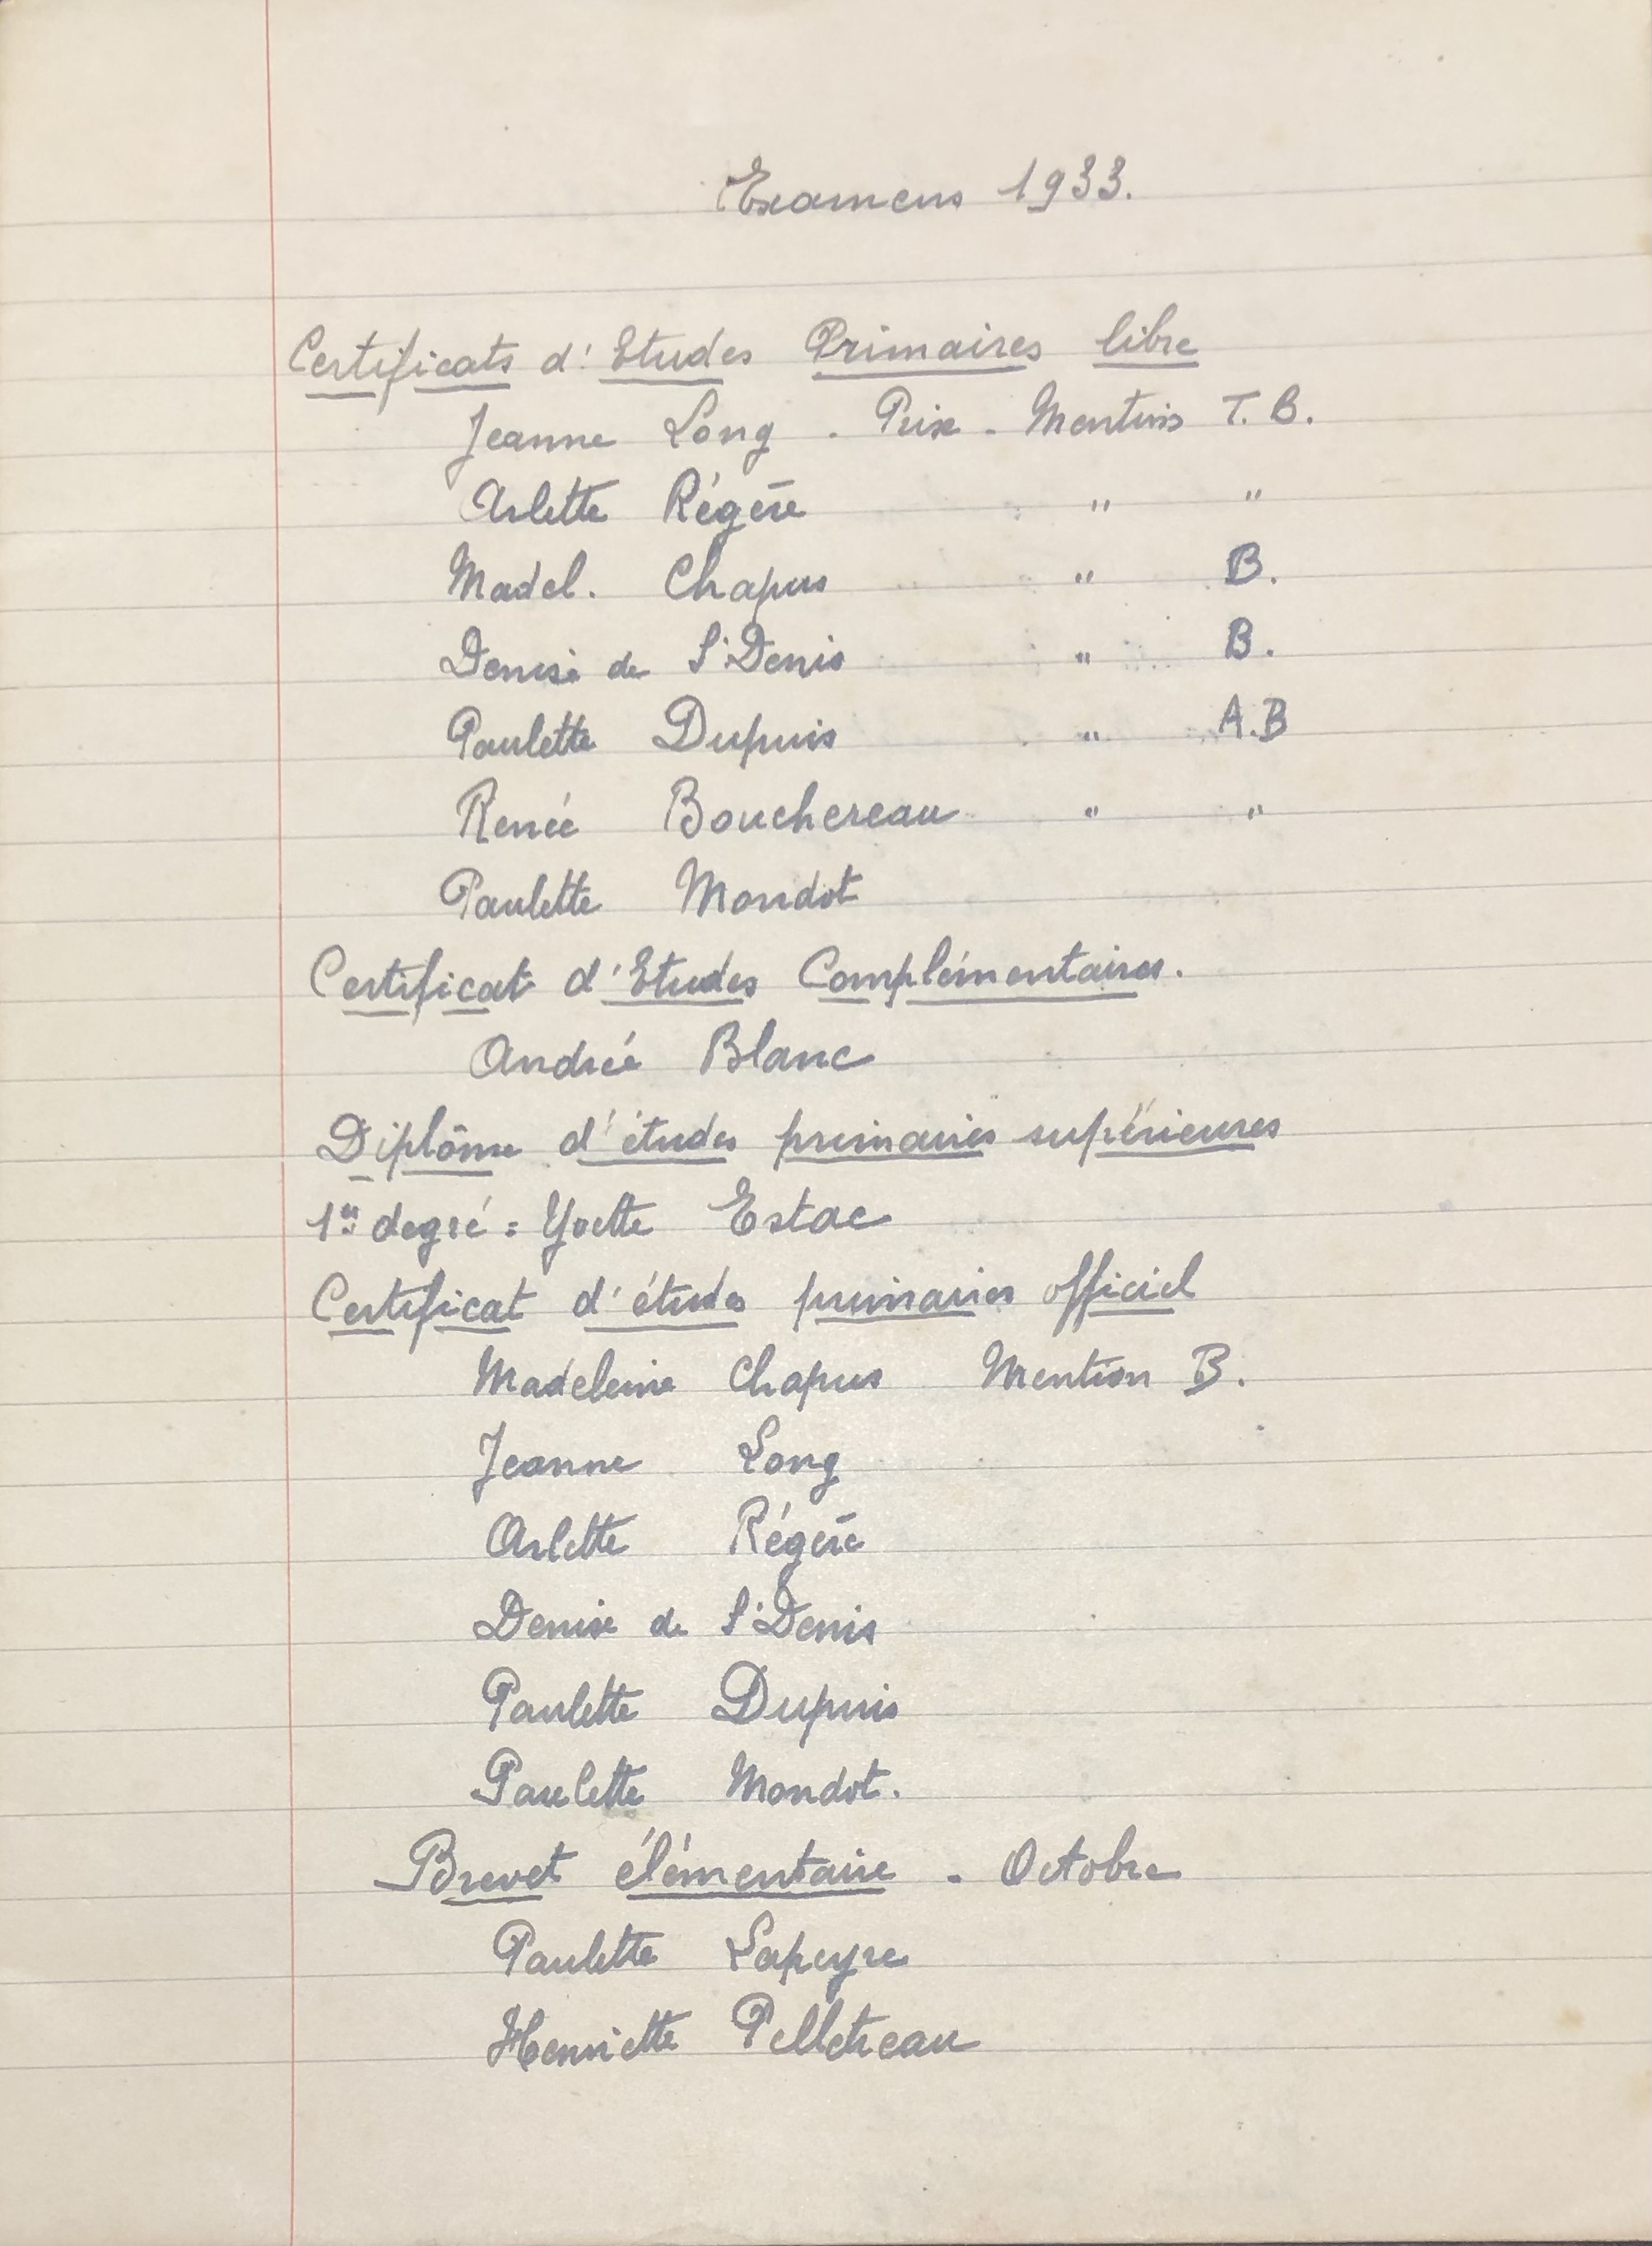 Examens 1933.
Certificats d'Etudes Primaires libre
Jeanne Long . Prix - Mention T. B.
Arlette Régère " "
Madel. Chapus " B.
Denise de St Denis " B.
Paulette Dupuis " A.B
Renée Bouchereau " "
Paulette Mondot
Certificat d'Etudes Complémentaires.
Andrée Blanc
Diplôme d'études primaires supérieures
1er degré = Yvette Estac
Certificat d'études primaires officiel
Madeleine Chapus Mention B.
Jeanne Long
Arlette Régère
Denise de St Denis
Paulette Dupuis
Paulette Mondot.
Brevet élémentaire - Octobre
Paulette Lapeyre
Henriette Pelletreau